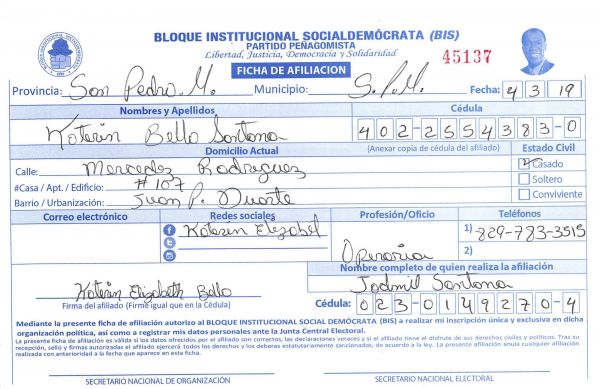 BLOQUE INSTITUCIONAL SOCIALDEMÓCRATA (BIS)
PARTIDO PEÑAGOMISTA
Libertad, Justicia, Democracia y Solidaridad
45137
FICHA DE AFILIACION
Provincia: San Pedro M. Municipio: S.P.M. Fecha: 4 3 19
Nombres y Apellidos Cédula
Katerin Bello Santana 402-2554383-0
Domicilio Actual (Anexar copia de cédula del afiliado) Estado Civil
Calle: Mercedez Rodriguez Casado
#Casa / Apt. / Edificio: #107 Soltero
Barrio / Urbanización: Juan P. Duarte Conviviente
Correo electrónico Redes sociales Profesión/Oficio Teléfonos
Katerin Elezabel 1) 829-783-3515
Operaria 2)
Nombre completo de quien realiza la afiliación
Katerin Elizabeth Bello Jodmil Santana
Firma del afiliado (Firme igual que en la Cédula) Cédula: 023-0149270-4
Mediante la presente ficha de afiliación autorizo al BLOQUE INSTITUCIONAL SOCIAL DEMÓCRATA (BIS) a realizar mi inscripción única y exclusiva en dicha
organización política, así como a registrar mis datos personales ante la Junta Central Electoral.
La presente ficha de afiliación es válida si los datos ofrecidos por el afiliado son correctos, las declaraciones veraces y si el titular tiene el disfrute de sus derechos civiles y políticos. Tras su
recepción, sello y firmas autorizadas el afiliado ejercerá todos los derechos y los deberes estatutariamente sancionados, de acuerdo a la ley. La presente afiliación anula cualquier afiliación
realizada con anterioridad a la fecha que aparece en esta ficha.
SECRETARIO NACIONAL DE ORGANIZACIÓN SECRETARIO NACIONAL ELECTORAL